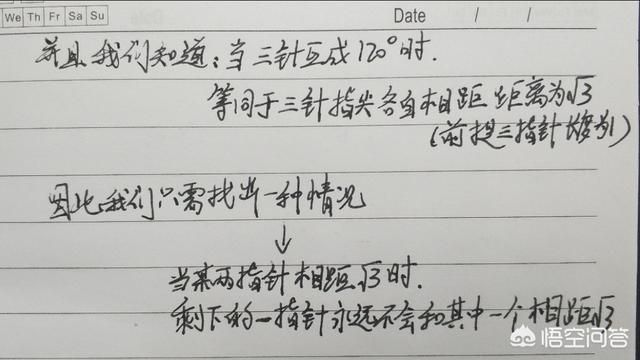 We Th Fr Sa Su
Date / /
并且我们知道:当三针互成120°时.
等同于三针指尖各自相距 距离为√3
(前提三指针长度为1)
因此我们只需找出一种情况
↓
当某两指针相距√3时.
剩下的一指针永远不会和其中一个相距√3
悟空问答